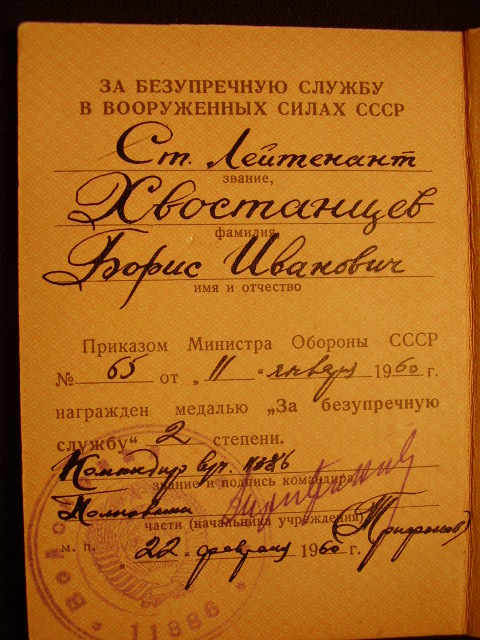 ЗА БЕЗУПРЕЧНУЮ СЛУЖБУ
В ВООРУЖЕННЫХ СИЛАХ СССР
Ст. Лейтенант
звание,
Хвостанцев
фамилия,
Борис Иванович
имя и отчество
Приказом Министра Обороны СССР
№ 65 от „11“ января 1960 г.
награжден медалью „За безупречную
службу“ 2 степени.
Командир в/ч
звание и подпись командира
Полковник
части (начальника учреждения) (Трифонов)
м. п. „22“ февраля 1960 г.
11886